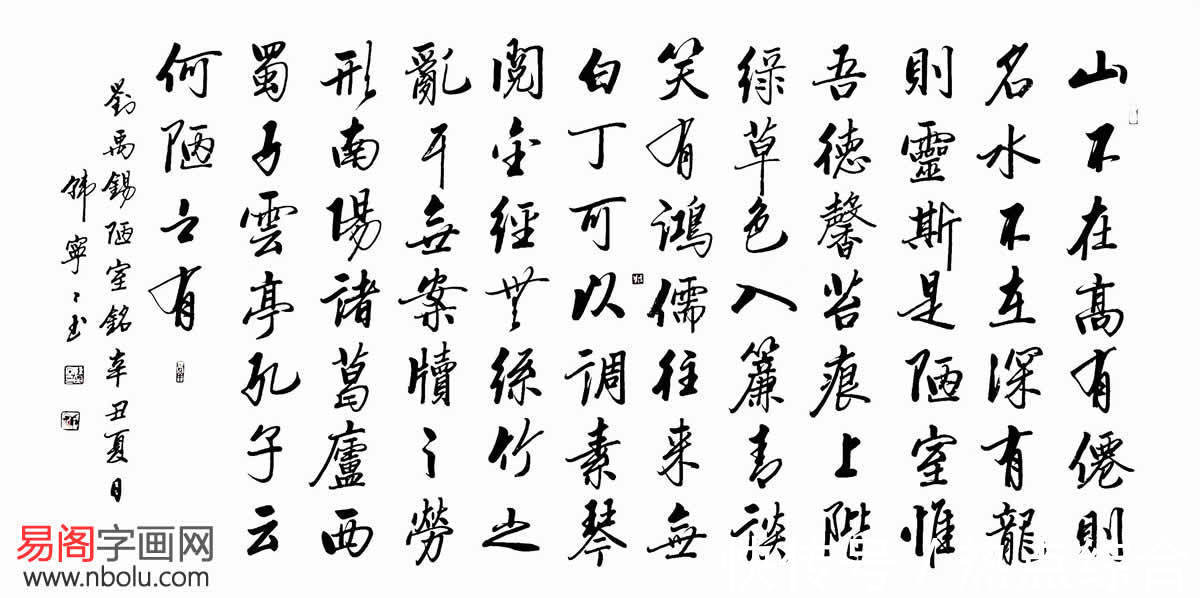 山不在髙有僊則
名水不在深有龍
則靈斯是陋室惟
吾德馨苔痕上階
綠草色入簾青談
笑有鴻儒往来無
白丁可以調素琴
閱金經無絲竹之
亂耳無案牘之勞
形南陽諸葛廬西
蜀子雲亭孔子云
何陋之有
劉禹錫陋室銘辛丑夏日
寧〻书
易阁字画网
www.nbolu.com